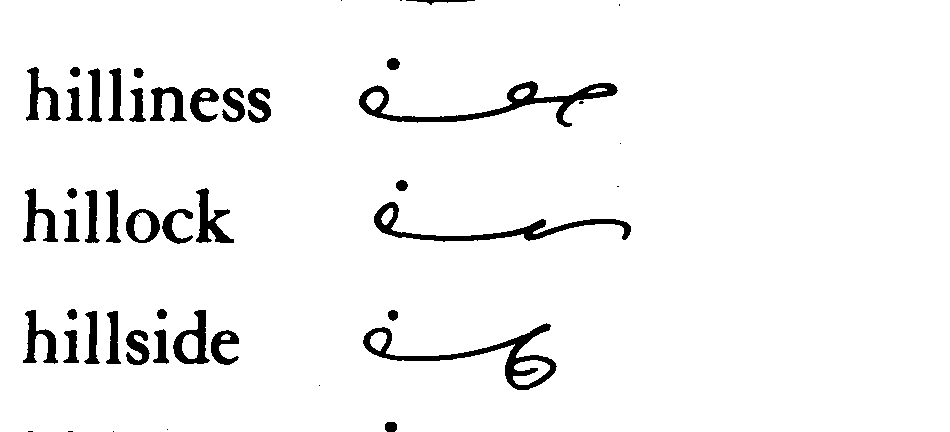 hilliness
hillock
hillside